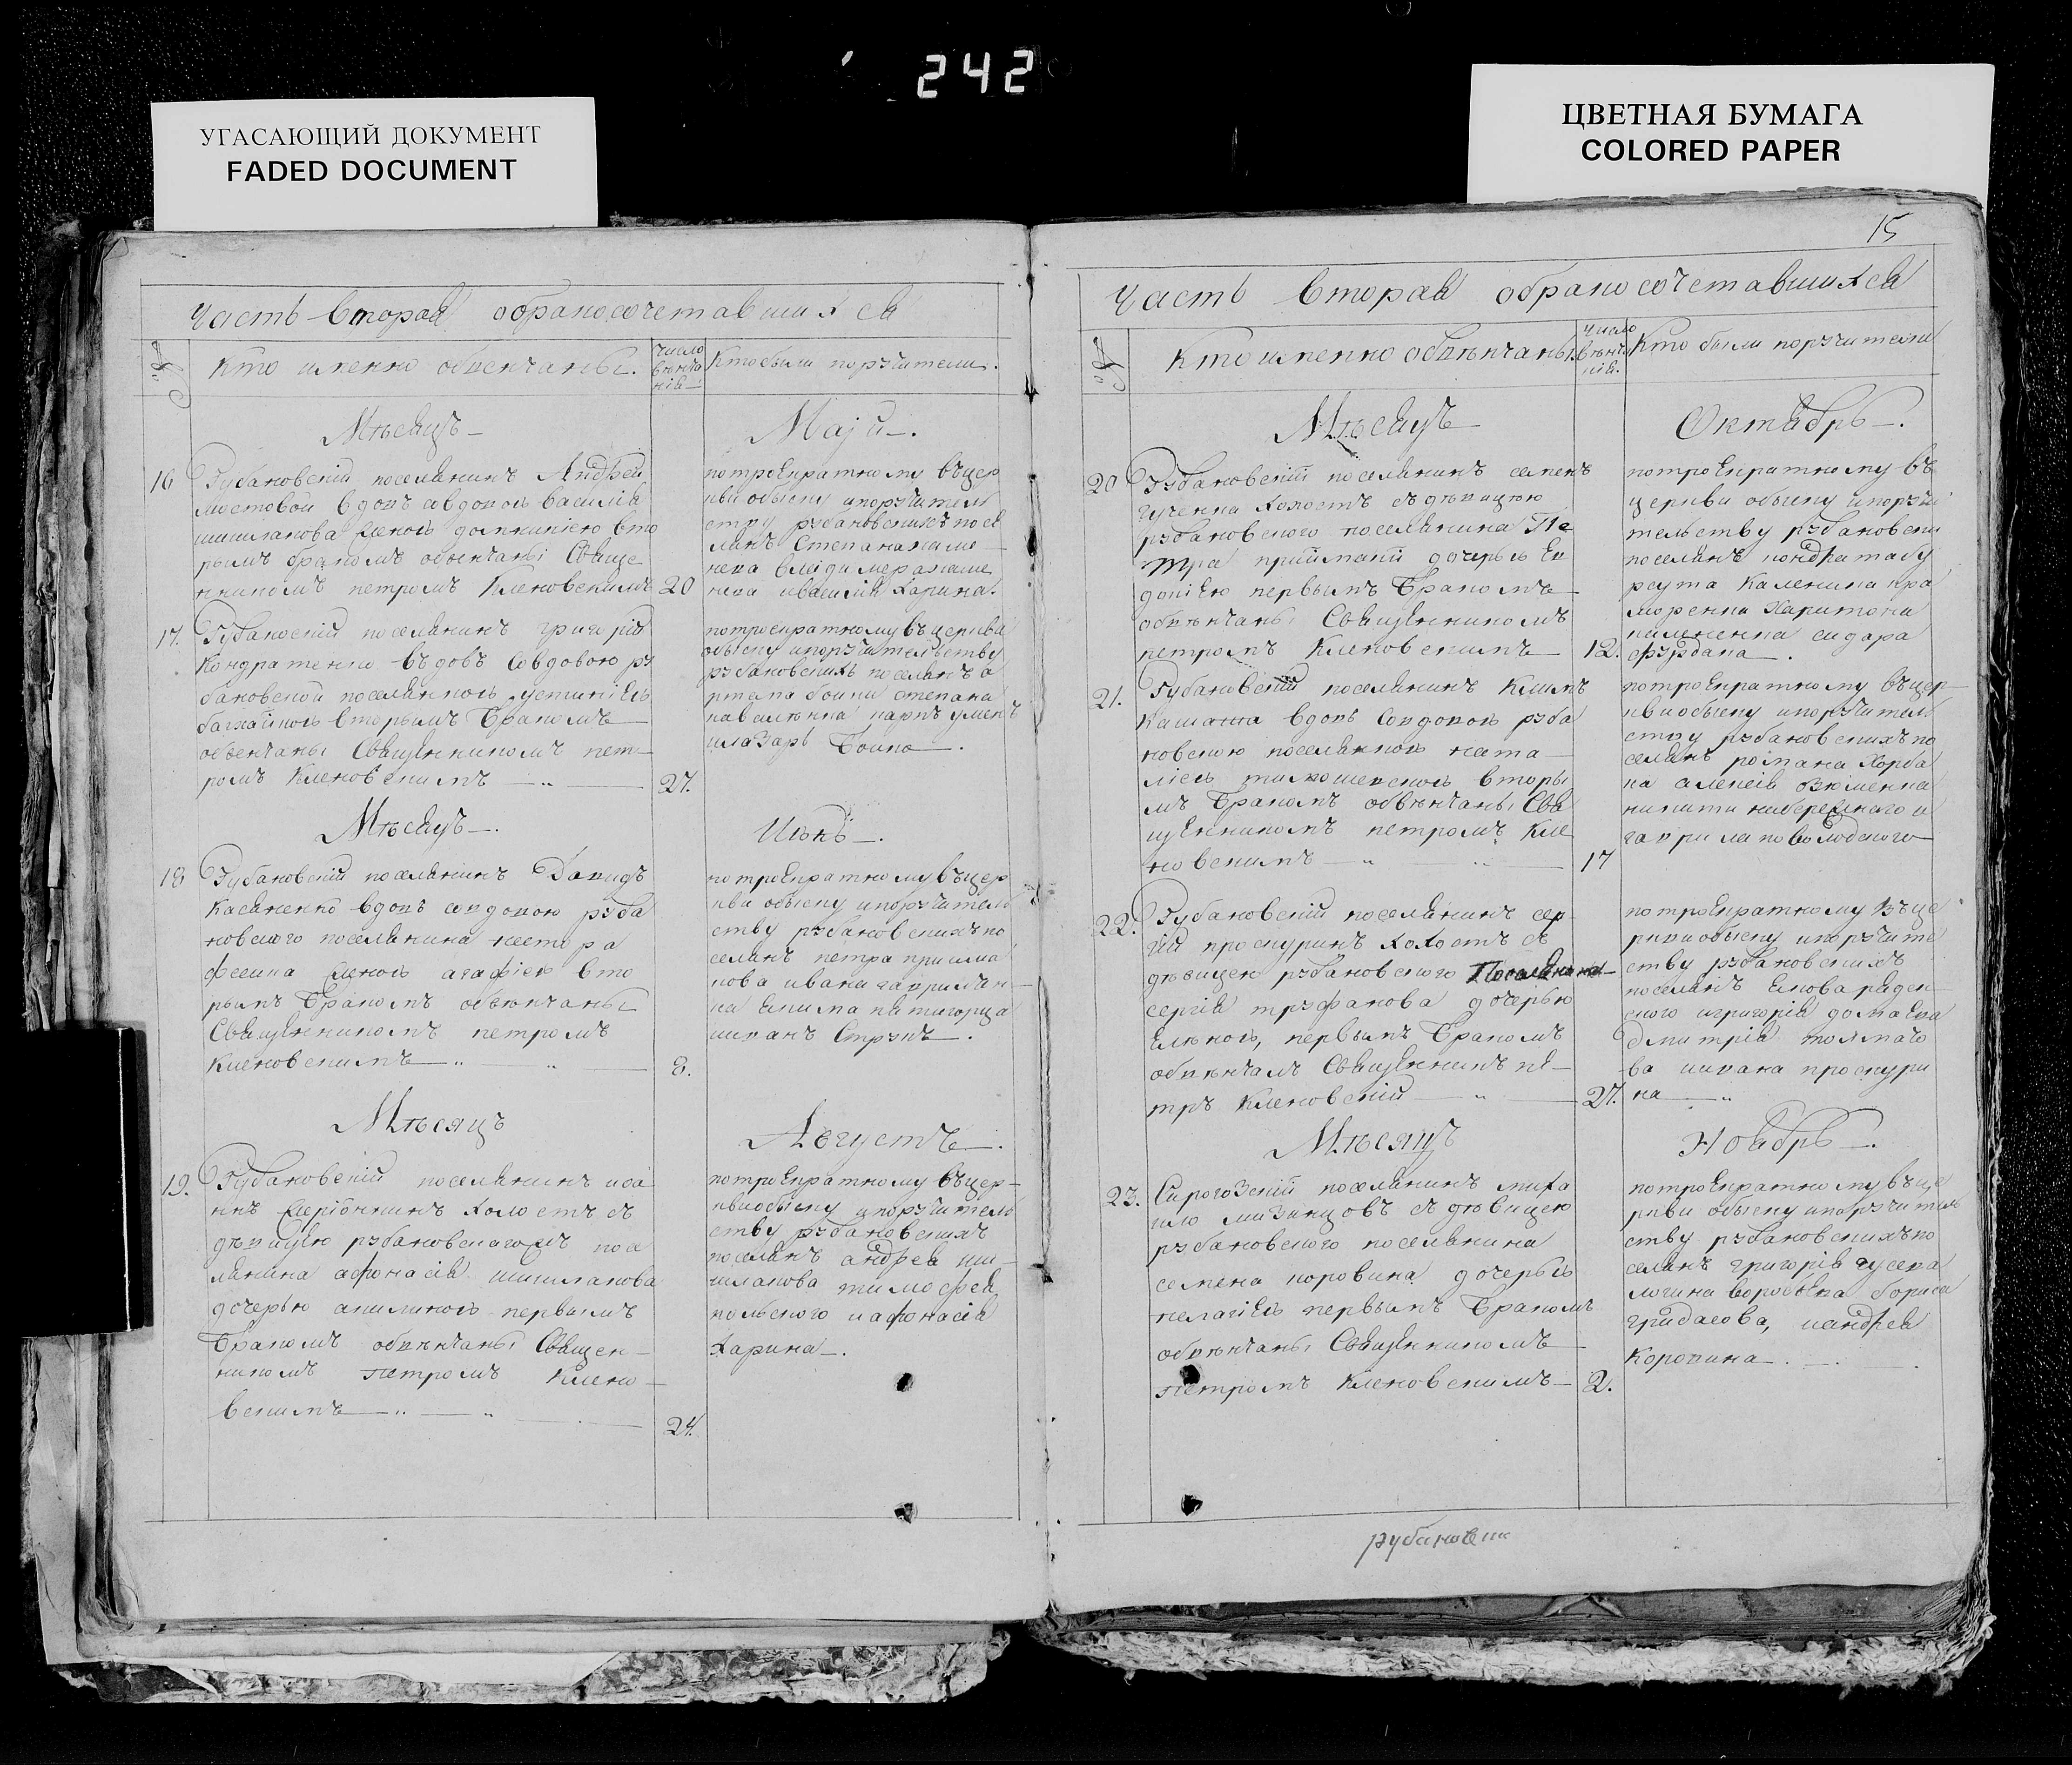 242
УГАСАЮЩИЙ ДОКУМЕНТ
FADED DOCUMENT
ЦВЕТНАЯ БУМАГА
COLORED PAPER
Часть вторая обракосочетавшихся
№
Кто именно обвенчаны.
число венча нія
Кто были поручители.
Мѣсяцъ
Маій
16
Рубановскій поселянинъ Андрей
мостовой вдовъ совдовою василія
шишланова женою домникіею вто
рымъ бракомъ обвенчаны Свяще
нникомъ петромъ Кленовскимъ
20
потроекратному въцер
кви обыску ипоручитель
ству рубановскихъ посе
лянъ Степана
василія Харина.
17.
Рубановскій поселянинъ григорій
Кондратенко вдовъ совдовою ру
бановской поселянкою устиніею
вторымъ бракомъ
обвенчаны Священникомъ пет
ромъ Кленовскимъ
27.
потроекратному въ церкви
обыску ипоручительству
рубановскихъ поселянъ а
ртема бойки степана
илазаръ бойко.
Мѣсяцъ
Июнь
18
Рубановскій поселянинъ Давидъ
Касяненко вдовъ совдовою руба
новского поселянина нестора
женою агафіею вто
рымъ бракомъ обвѣнчаны
Священникомъ петромъ
Кленовскимъ
8.
потроекратному въцер
кви обыску ипоручитель
ству рубановскихъ по
селянъ петра прийма
кова ивана
на якима пятигорца
Мѣсяцъ
Августъ
19.
Рубановскій поселянинъ ива
нъ холостъ съ
дѣвицею рубановскагожъ посе
лянина афонасія шишланова
дочерью акилиною первымъ
бракомъ обвѣнчаны Священ
никомъ петромъ Клено
вскимъ
24.
потроекратному въцер
кви обыску ипоручитель
ству рубановскихъ
поселянъ андрея ши
шланова тимофея
польского иафонасія
Харина.
15
Часть вторая обракосочетавшихся
№
Кто именно обвѣнчаны.
число вѣнча нія.
Кто были поручители
Мѣсяцъ
Октябрь
20
Рубановскій поселянинъ семенъ
гученко холостъ съ дѣвицею
рубановского поселянина Пе
тра приймакй дочерью Ев
докіею первымъ бракомъ
обвѣнчаны Священникомъ
петромъ Кленовскимъ
12.
потроекратному въ
церкви обыску ипоручи
тельству рубановски
поселянъ
Харитона
сидора
21.
Рубановскій поселянинъ Климъ
вдовъ совдовою руба
новскою поселянкою ната
ліею тимошевскою вторы
мъ бракомъ обвѣнчаны Свя
щенникомъ петромъ Кле
новскимъ
17
потроекратному въцер
кви обыску ипоручитель
ству рубановскихъ по
селянъ романа Хорба
ка алексія
никити набережнаго и
гаврила поволодского
22.
Рубановскій поселянинъ сер
гій проскуринъ холостъ съ
дѣвицею рубановского Поселянина
сергія труфанова дочерью
Еленою, первымъ бракомъ
обвѣнчалъ Священникъ пе
тръ Кленовскій
27.
потроекратному въце
ркви обыску ипоручите
ству рубановскихъ
поселянъ
ского игригорія
дмитрія толмачо
ва иивана проскури
на
Мѣсяцъ
Ноябрь
23.
Сирогозскій поселянинъ миха
ило мизинцовъ съ дѣвицею
рубановского поселянина
семена коровина дочерью
пелагіею первымъ бракомъ
обвѣнчаны Священникомъ
петромъ Кленовскимъ
2.
потроекратному въце
ркви обыску ипоручитель
ству рубановскихъ по
селянъ григорія гусева
логина воробьева бориса
гридасова, иандрея
Коровина
рубановка